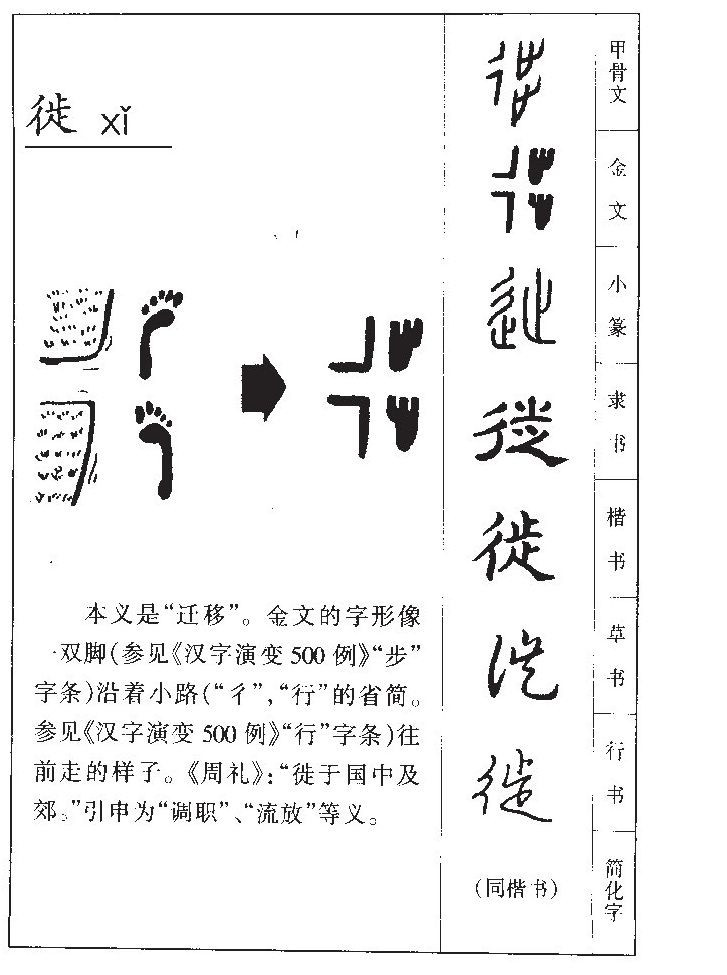 徙 xǐ
本义是“迁移”。金文的字形像
一双脚(参见《汉字演变 500 例》“步”
字条)沿着小路(“彳”,“行”的省简。
参见《汉字演变 500 例》“行”字条)往
前走的样子。《周礼》:“徙于国中及
郊。”引申为“调职”、“流放”等义。
徙 甲骨文
徙 金文
徙 小篆
徙 隶书
徙 楷书
徙 草书
徙 行书
(同楷书) 简化字